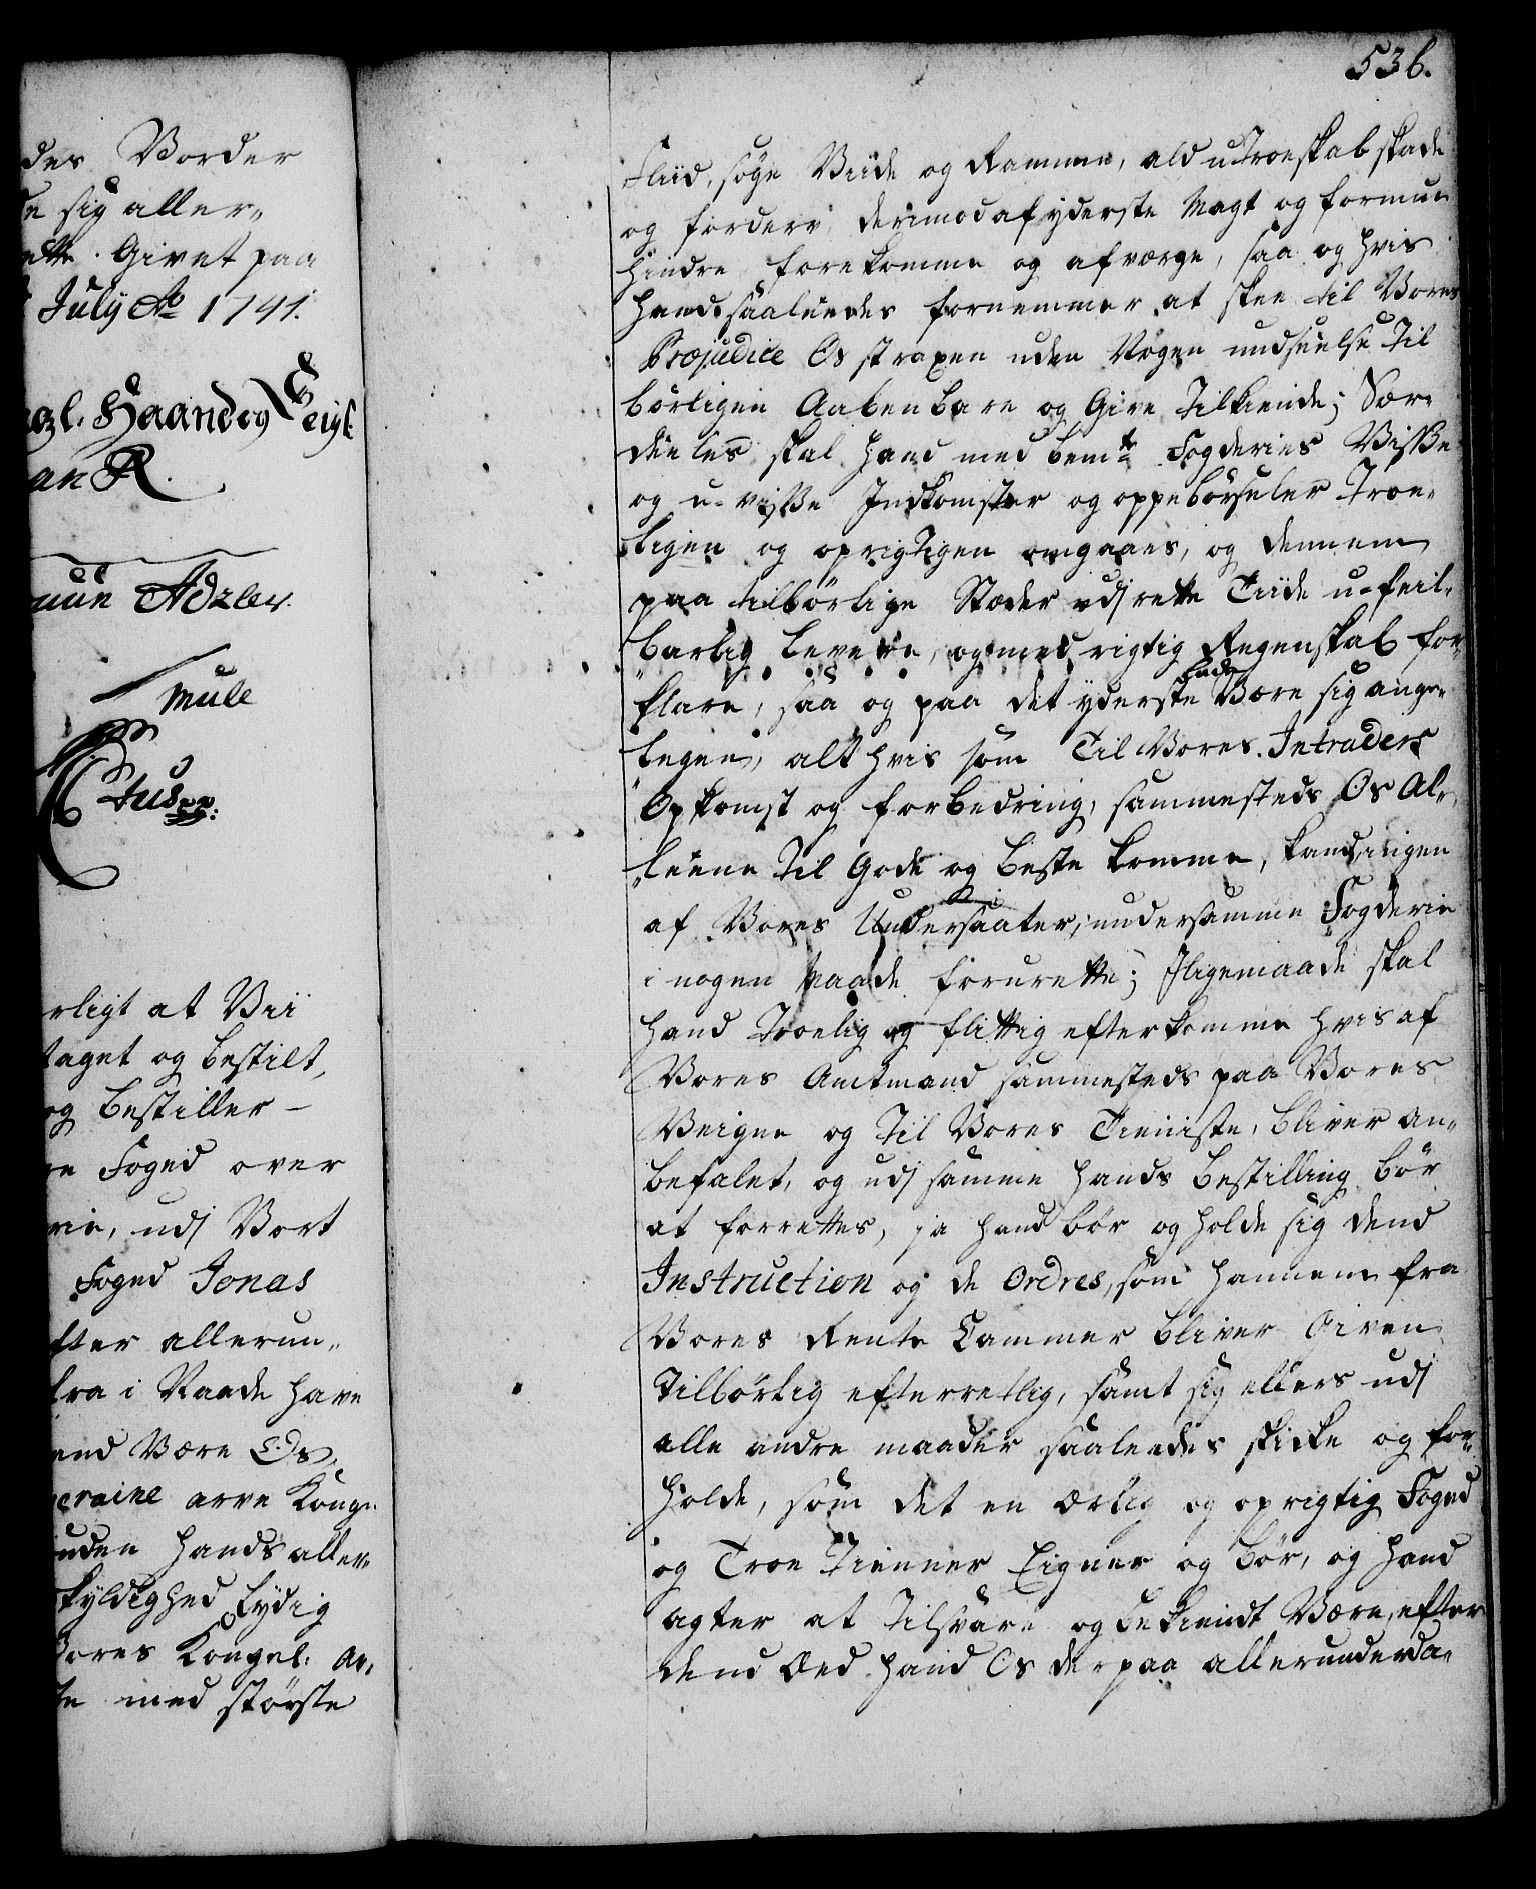 des Vorder
de sig aller„
rette. Givet paa
July Ao 1741.
gl. Haand og Seigl
an R.
uün Adeler.
Mule
Tusch.
rligt at Vii
taget og bestilt,
og bestiller –
re Foged over
rie, udj Vort
Foged Jonas
fter allerun„
tra i Naade have
and Være Os,
eraine arve Konge
uden hands aller„
skyldighed Lydig
Vores Kongel: Ar„
te med største
536.
Fliid, søge Viide og Ramme, ald utroeskab skade
og forderv, derimod af yderste Magt og formue
hindre forekomme og afværge, saa og hvis
hand saaledes fornemmer at skee til Vores
Præjudice Os straxen uden Nogen undseelse til
børligen Aabenbare og Give tilkiende; Sær„
deeles skal hand med bemte Fogderies Visse
og u-visse Indkomster og oppebørseler troe„
ligen og oprigtigen omgaaes, og dennem
paa tilbørlige Stæder udj rette Tiide u-feil„
barlig levere, og med rigtig Regenskab for„
klare, saa og paa det yderste lade Være sig ange„
legen, alt hvis som Til Vores Intraders
Opkomst og forbedring, sammesteds Os Al„
„leene til Gode og beste komme, kand, ingen
af Vores Undersaater, i under samme Fogderie
i nogen Maade forurette; Iligemaade skal
hand troelig og flittig efterkomme hvis af
Vores Amtmand sammesteds paa Vores
Veigne og til Vores Tieniste, bliver an„
befalet, og udj samme hands bestilling bør
at forrettes, ja hand bør og holde sig dend
Instruction og de Ordres, som hannem fra
Vores Rente Cammer bliver Given
tilbørlig efterretlig, samt sig ellers udj
alle andre maader saaledes skikke og for„
holde, som det en ærlig og oprigtig Foged
og Troe tienner Eigner og bør, og hand
agter at tilsvare og bekiendt Være, efter
dend Æed hand Os derpaa allerunderda„